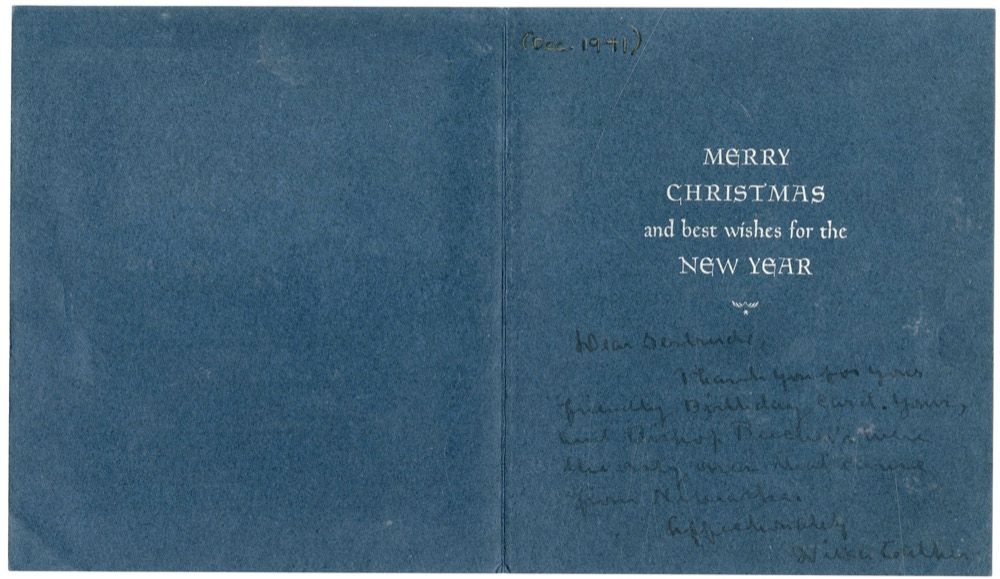 (Dec. 1941)
MERRY
CHRISTMAS
and best wishes for the
NEW YEAR
Dear Gertrude,
Thank you for your
friendly Birthday Card. Yours,
and Bishop Beecher's were
the only ones that came
from Nebraska.
Affectionately
Willa Cather